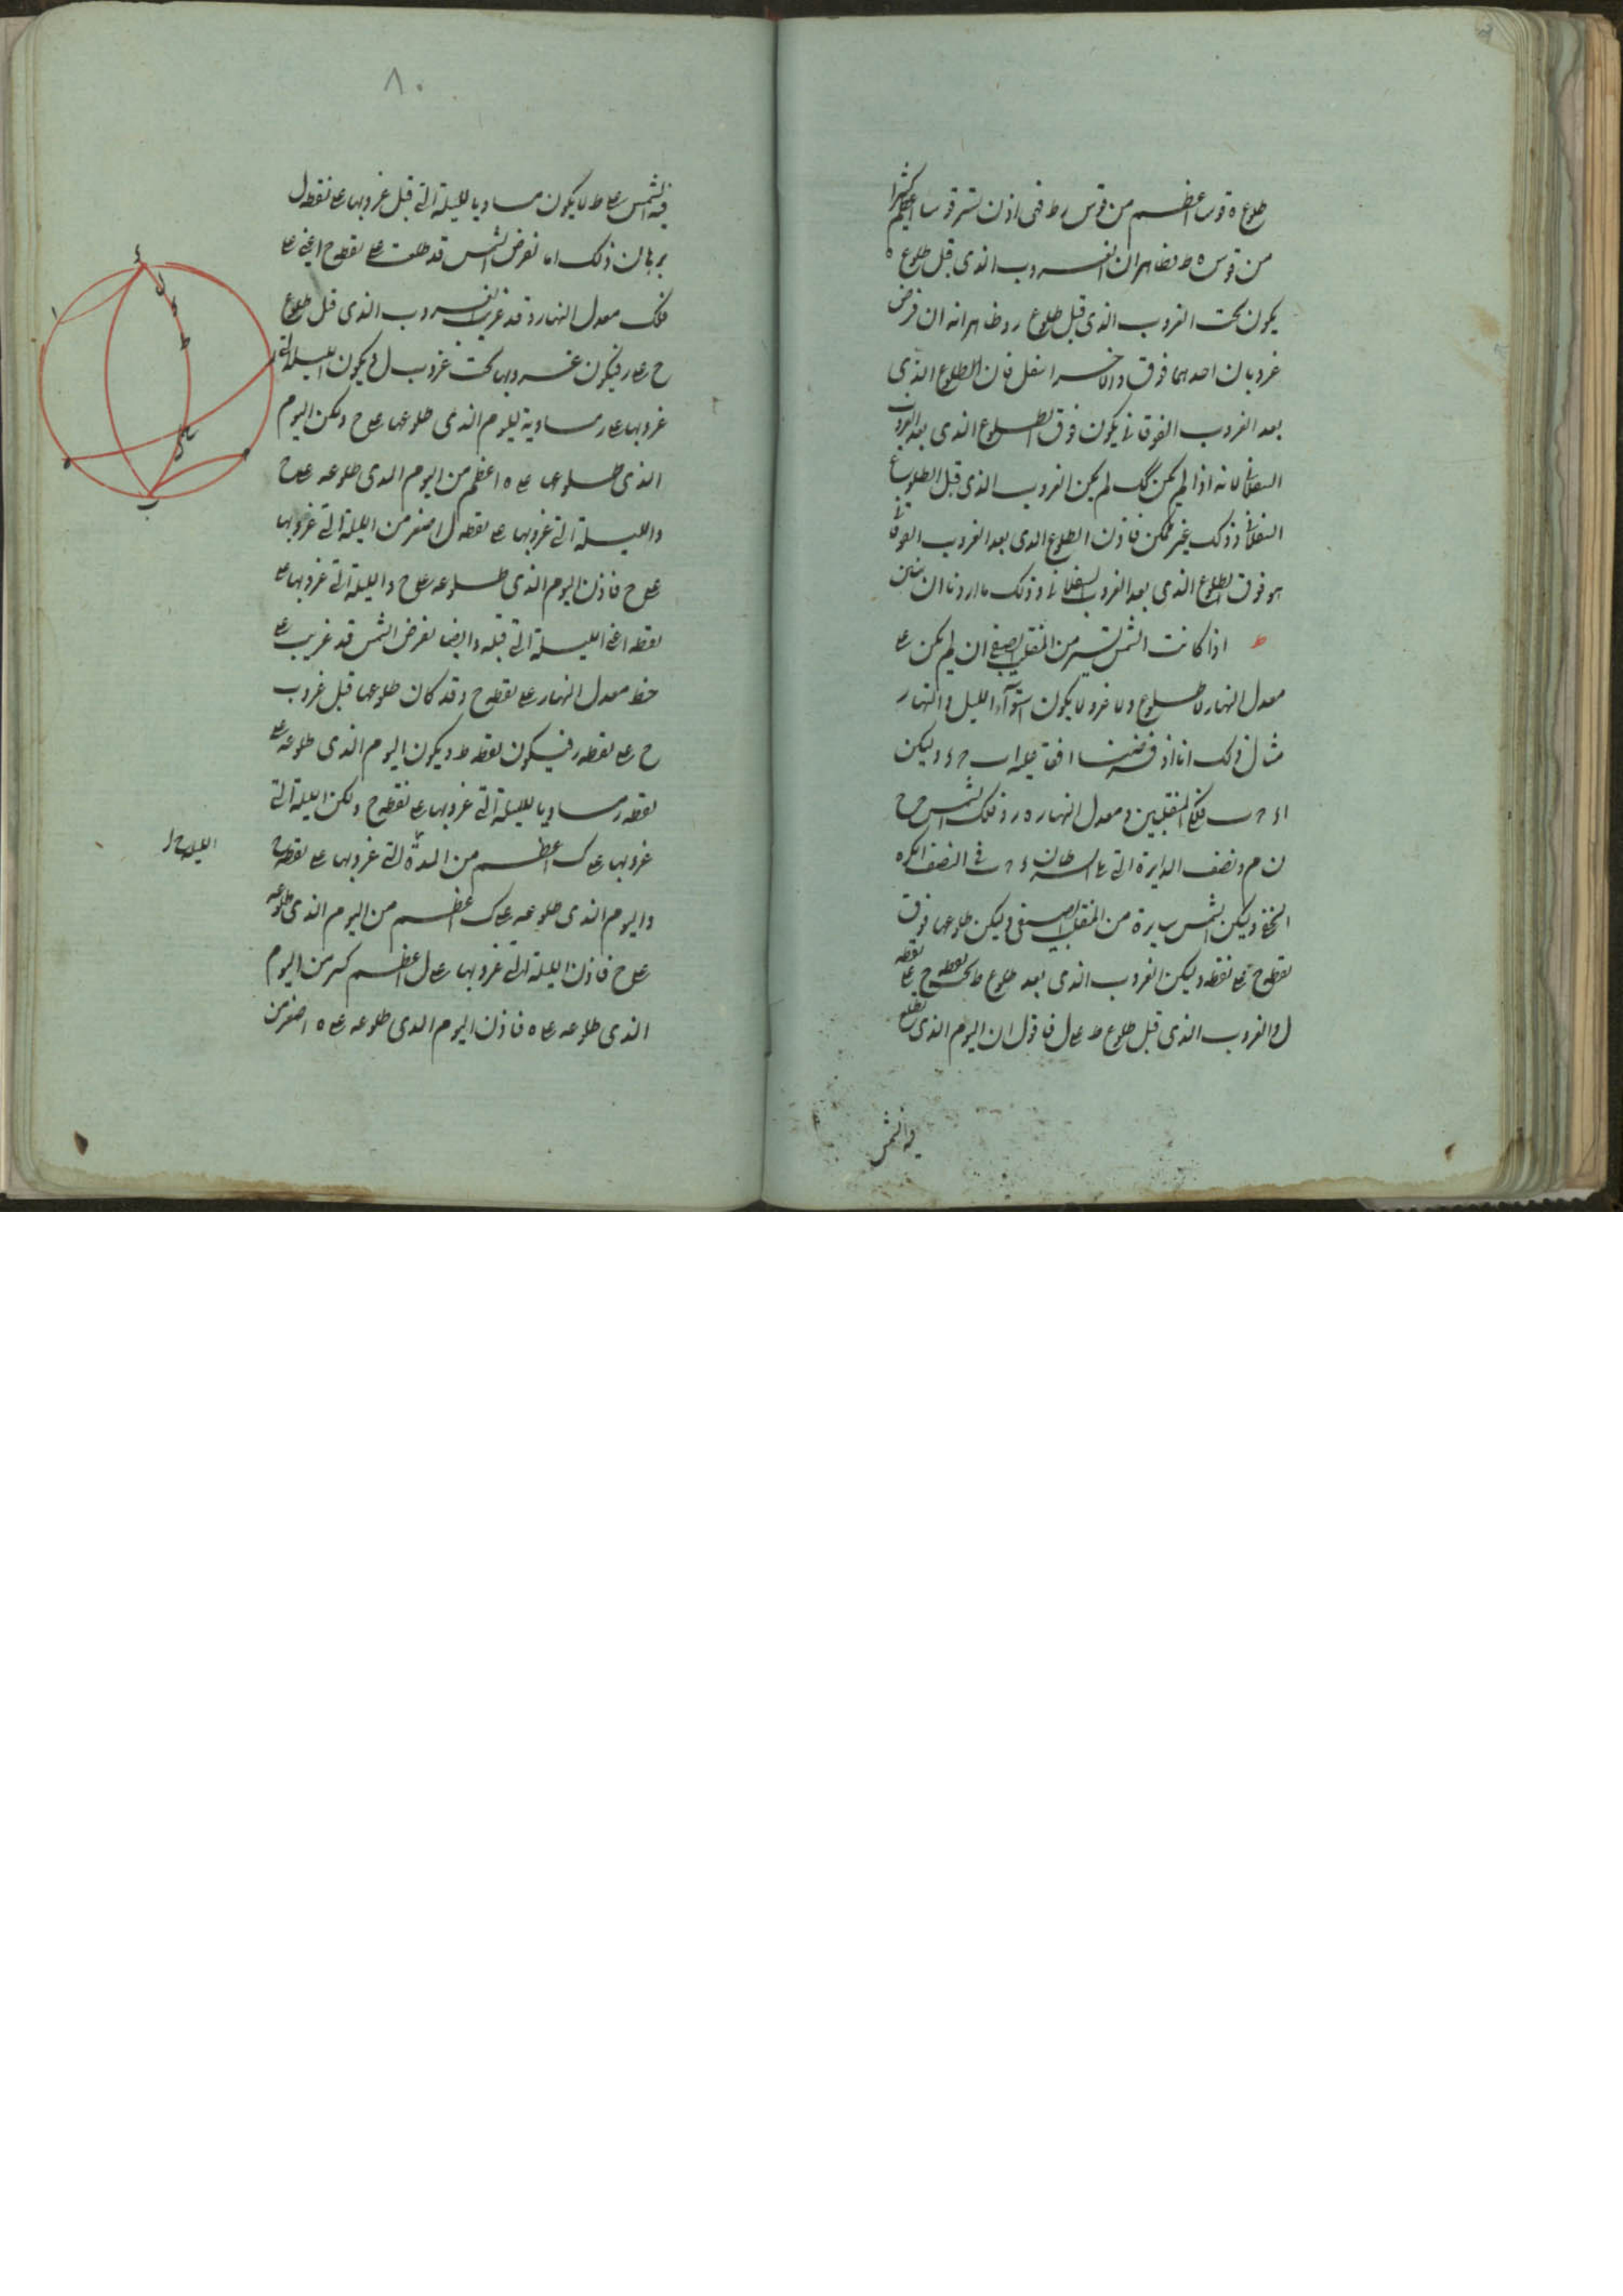 طلوع ه قوس اعظم من قوس ر ط فهى اذن تستر قوسا اعظم كثيرا
من قوس ه ط فظاهر ان الغروب الذى قبل طلوع ه
يكون تحت الغروب الذى قبل طلوع ر وظاهر انه ان فرض
غروبان احدهما فوق والاخر اسفل فان الطلوع الذى
بعد الغروب الفوقانى يكون فوق الطلوع الذى بعد الغروب
السفلانى لانه اذا لم يكن كك لم يكن الغروب الذى قبل الطلوع
السفلانى وذلك غير ممكن فاذن الطلوع الذى بعد الغروب الفوقانى
هو فوق الطلوع الذى بعد الغروب السفلانى وذلك ما اردنا ان نبين
ط اذا كانت الشمس تسير من المنقلب الصيفى ان لم يكن على
معدل النهار لا طلوع ولا غروب لا يكون استوآء الليل والنهار
مثال ذلك انا اذ فرضنا افقا عليه ا ب ح د وليكن
ا د ح ب فلكى المنقلبين ومعدل النهار ه ر وفلك الشمس ح
ن م ونصف الدايرة التى على السرطان د ح ب فى النصف الكره
الخفى وليكن الشمس سايرة من المنقلب الصيفى وليكن طلوعها فوق
نقطه ح على نقطه وليكن الغروب الذى بعد طلوع ط تحت نقطه ح على نقطه
ل والغروب الذى قبل طلوع ط على ل فاقول ان اليوم الذى تطلع
فيه الشمس
٨٠
فيه الشمس على ط لا يكون مساويا لليلة التى قبل غروبها على نقطه ل
برهان ذلك انا نفرض الشمس قد طلعت على نقطه ح اعنى على
فلك معدل النهار وقد غربت الغروب الذى قبل طلوع
ح على ر فيكون غروبها تحت غروب ل ويكون الليلة التى
غروبها على ر مساوية لليوم الذى طلوعها على ح ولكن اليوم
الذى طلوعها على ه اعظم من اليوم الذى طلوعه على ح
والليلة التى غروبها على نقطه ل اصغر من الليلة التى غروبها
على ح فاذن اليوم الذى طلوعه على ح والليلة التى غروبها على
نقطه اعنى الليلة التى قبله وايضا نفرض الشمس قد غربت على
خط معدل النهار على نقطه ح وقد كان طلوعها قبل غروب
ح على نقطه ر فيكون نقطه ط ويكون اليوم الذى طلوعه على
نقطه ر مساويا لليلة التى غروبها على نقطه ح ولكن الليلة التى
غروبها على ك اعظم من المدة التى غروبها على نقطه ح
واليوم الذى طلوعه على ك اعظم من اليوم الذى طلوعه
على ح فاذن الليلة التى غروبها على ل اعظم كثير من اليوم
الذى طلوعه على ه فاذن اليوم الذى طلوعه على ه اصغر من